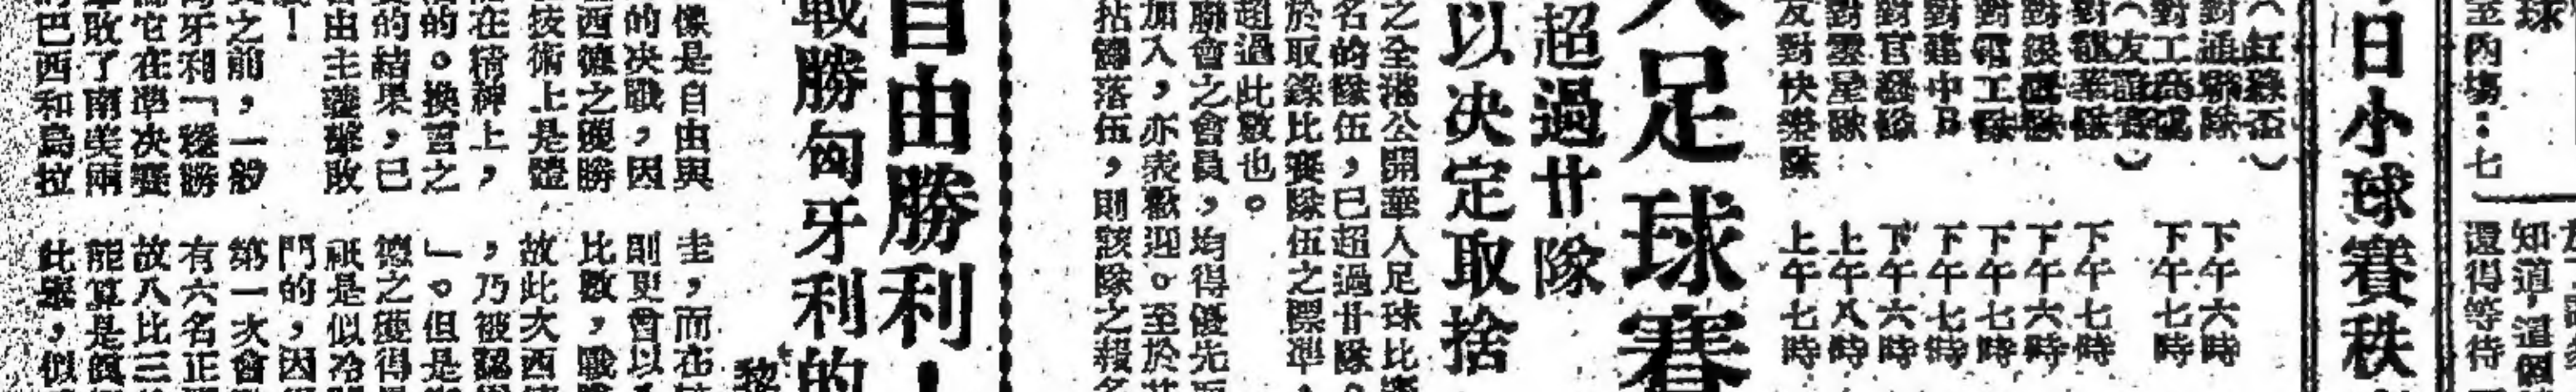 球
至內場：七
還得等待
知道，這個
日小球賽秩
（紅綠盃）
對通聯隊 下午六時
對工商隊 下午七時
（友誼賽）
對龍華隊 下午七時
對銀鷹隊 下午六時
對電工隊 下午七時
對建中B 下午七時
對官醫隊 下午六時
對雲星隊 上午八時
友對快樂隊 上午七時
人足球賽
超過廿隊
以決定取捨
之全港公開華人足球比賽
名的隊伍，已超過廿隊。
於取錄比賽隊伍之標準，
超過此數也。
聯會之會員，均得優先
加入，亦表歡迎。至於
拈鬮落伍，則該隊之報名
自由勝利！
戰勝匈牙利的
黎
像是自由與
的決戰，因
西德之獲勝
技術上是體
在精神上，
的。換言之
的結果，已
由主義擊敗
！
之前，一般
牙利「穩勝
它在準決賽
敗了南美兩
巴西和烏拉
圭，而在
則更曾以
比數，戰
故此次西
，乃被認
」。但是
德之獲得
祇是似冷
門的，因
第一次會
有六名正
故八比三
能算是
此舉，似